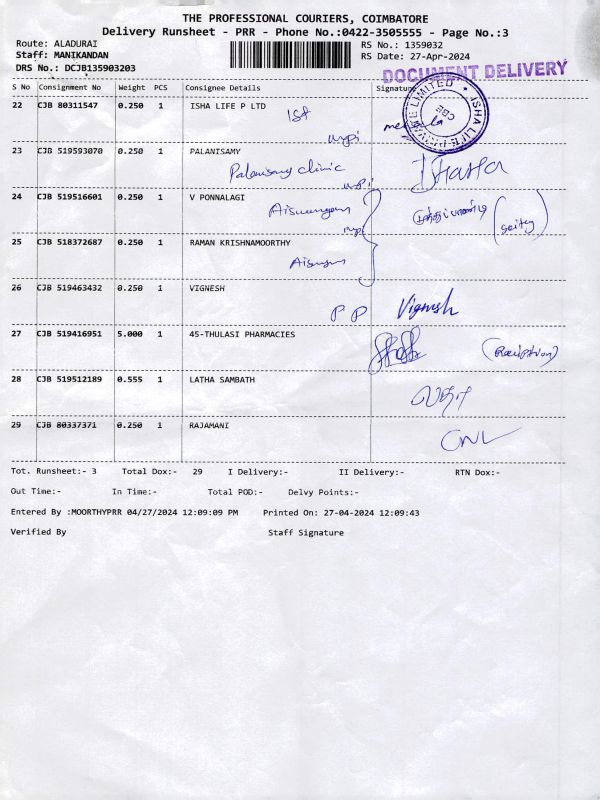 THE PROFESSIONAL COURIERS, COIMBATORE
Delivery Runsheet - PRR - Phone No.:0422-3505555 - Page No.:3
Route: ALADURAI RS No.: 1359032
Staff: MANIKANDAN RS Date: 27-Apr-2024
DRS No.: DCJB135903203
DOCUMENT DELIVERY
S No Consignment No Weight PCS Consignee Details Signature
22 CJB 80311547 0.250 1 ISHA LIFE P LTD
ISHA LIFE PRIVATE LIMITED
CBE
23 CJB 519593070 0.250 1 PALANISAMY
Palanisamy clinic
24 CJB 519516601 0.250 1 V PONNALAGI
25 CJB 518372687 0.250 1 RAMAN KRISHNAMOORTHY
26 CJB 519463432 0.250 1 VIGNESH
P P Vignesh
27 CJB 519416951 5.000 1 45-THULASI PHARMACIES
28 CJB 519512189 0.555 1 LATHA SAMBATH
லதா
29 CJB 80337371 0.250 1 RAJAMANI
Tot. Runsheet:- 3 Total Dox:- 29 I Delivery:- II Delivery:- RTN Dox:-
Out Time:- In Time:- Total POD:- Delvy Points:-
Entered By :MOORTHYPRR 04/27/2024 12:09:09 PM Printed On: 27-04-2024 12:09:43
Verified By Staff Signature